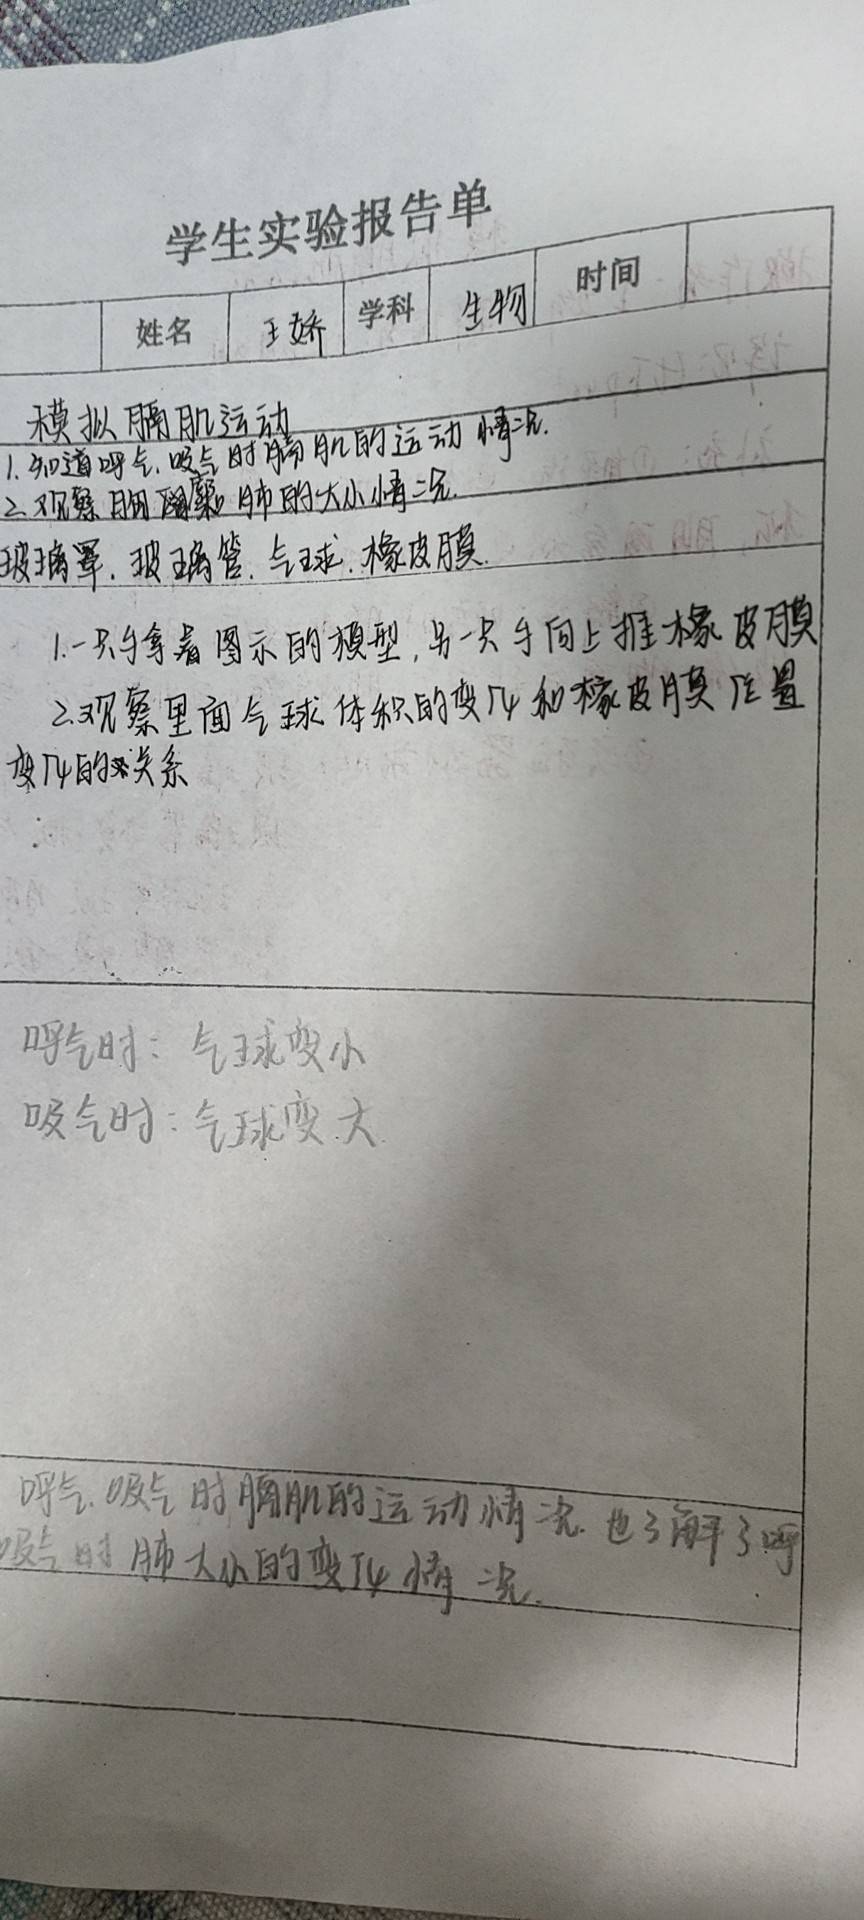 学生实验报告单
姓名 王娇 学科 生物 时间
模拟膈肌运动
1.知道呼气.吸气时膈肌的运动情况.
2.观察胸廓 肺的大小情况.
玻璃罩.玻璃管.气球.橡皮膜.
1.一只手拿着图示的模型,另一只手向上推橡皮膜
2.观察里面气球体积的变化和橡皮膜位置
变化的关系
呼气时:气球变小
吸气时:气球变大
呼气.吸气时膈肌的运动情况.也了解了呼
吸气时肺大小的变化情况.